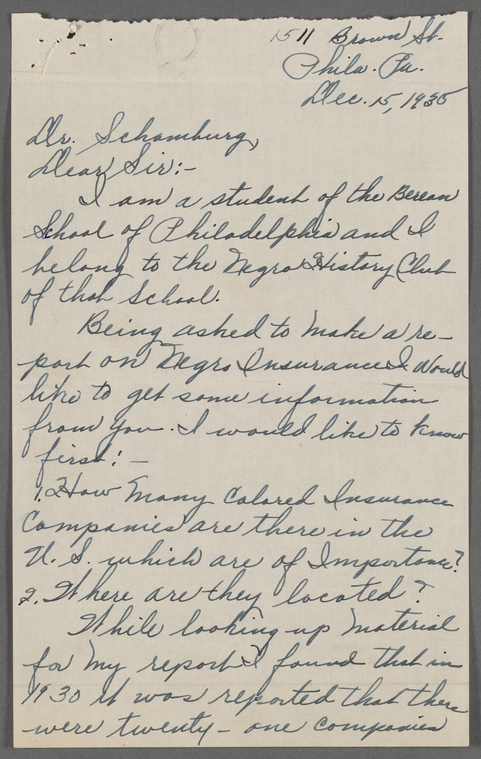 1511 Brown St.
Phila. Pa.
Dec. 15, 1935
Dr. Schomburg,
Dear Sir:-
I am a student of the Berean
School of Philadelphia and I
belong to the Negro History Club
of that School.
Being asked to make a re-
port on Negro Insurance I would
like to get some information
from you. I would like to know
first:-
1. How Many Colored Insurance
Companies are there in the
U. S. which are of Importance?
2. Where are they located?
While looking up material
for my report I found that in
1930 it was reported that there
were twenty-one companies